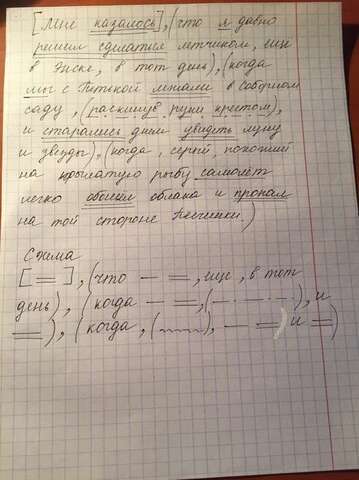 [Мне казалось], (что я давно
решил сделаться летчиком, еще
в Энске, в тот день), (когда
мы с Петькой лежали в соборном
саду, (раскинув руки крестом),
и старались днем увидеть луну
и звезды), (когда, серый, похожий
на крылатую рыбу самолёт
легко обошел облака и пропал
на той стороне Песчинки.)
Схема
[ = ], (что — =, еще, в тот
день), (когда — =, (—·—·—), и
=), (когда, (﹏﹏), — = и =)